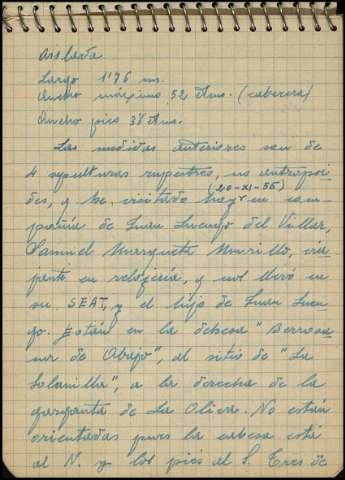 Largo 1'76 m.
Ancho máximo 52 ctms. (cabecera)
Ancho pies 38 ctms.
Las medidas anteriores son de
4 sepulturas rupestres, no antropoi
des, y he visitado hoy (20-XI-56) en com
pañía de Juan Luengo del Villar,
Samuel Marquete Murillo,
en relojería, y nos llevó en
su SEAT, y el hijo de Juan Luen
go. Están en la dehesa "Berroca
nur de Abajo", al sitio de "La
Solanilla", a la derecha de la
garganta de La Olivera. No están
orientadas pues la cabeza está
al N. y los pies al S. Tres de